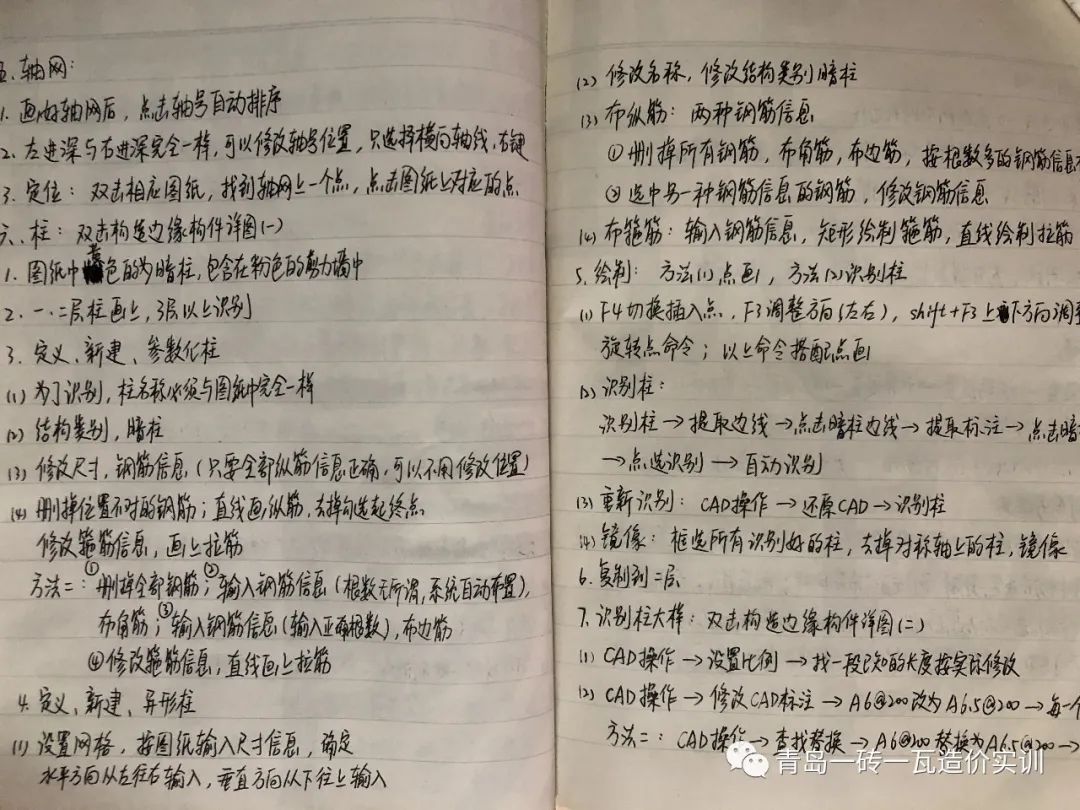 五.轴网:
1. 画好轴网后，点击轴号自动排序
2. 左进深与右进深完全一样，可以修改轴号位置，只选择横向轴线，右键
3. 定位：双击相应图纸，找到轴网上一个点，点击图纸上对应的点
六.柱：双击构造边缘构件详图(一)
1. 图纸中色的为暗柱，包含在粉色的剪力墙中
2. 一.二层柱画上，3层以上识别
3. 定义、新建、参数化柱
(1) 为了识别，柱名称必须与图纸中完全一样
(2) 结构类别，暗柱
(3) 修改尺寸，钢筋信息（只要全部纵筋信息正确，可以不用修改位置）
(4) 删掉位置不对的钢筋；直线画纵筋，去掉勾选起终点
修改箍筋信息，画上拉筋
方法二：①删掉全部钢筋；②输入钢筋信息（根数无所谓，系统自动布置），
布角筋；③输入钢筋信息（输入正确根数），布边筋
④修改箍筋信息，直线画上拉筋
4. 定义、新建、异形柱
(1) 设置网格，按图纸输入尺寸信息，确定
水平方向从左往右输入，垂直方向从下往上输入
(2) 修改名称，修改结构类别暗柱
(3) 布纵筋：两种钢筋信息
①删掉所有钢筋，布角筋，布边筋，按根数多的钢筋信息
②选中另一种钢筋信息的钢筋，修改钢筋信息
(4) 布箍筋：输入钢筋信息，矩形绘制箍筋，直线绘制拉筋
5. 绘制：方法(1)点画，方法(2)识别柱
(1) F4切换插入点，F3调整方向(左右)，shift+F3上下方向调
旋转点命令；以上命令搭配点画
(2) 识别柱：
识别柱→提取边线→点击暗柱边线→提取标注→点击暗
→点选识别→自动识别
(3) 重新识别：CAD操作→还原CAD→识别柱
(4) 镜像：框选所有识别好的柱，去掉对称轴上的柱，镜像
6. 复制到二层
7. 识别柱大样：双击构造边缘构件详图(二)
(1) CAD操作→设置比例→找一段已知的长度按实际修改
(2) CAD操作→修改CAD标注→A6@200改为A6.5@200→每一个
方法二：CAD操作→查找替换→A6@200替换为A6.5@200→
青岛一砖一瓦造价实训